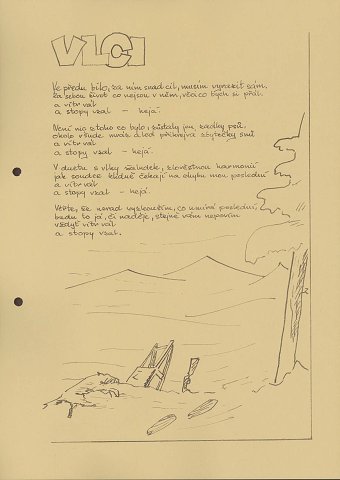 VLCI
Ve předu bílo, za ním snad cíl, musím vyrazit sám,
za sebou život co nejsou v něm, všaco bych si přál.
a vítr vál
a stopy vzal - hejá.
Není nic z toho co bylo, zůstaly jen, řádky psů.
okolo všude mráz a hlad přikrývá zbytečky snů
a vítr vál
a stopy vzal - hejá.
V duetu s vlky žaludek, zlověstnou harmonií
jak soudce klidně čekají na chybu mou poslední
a vítr vál
a stopy vzal - hejá.
Věřte, že nerad vyzkouším, co umírá poslední,
budu to já, či naděje, stejně vám nepovím
vždyť vítr vál
a stopy vzal.